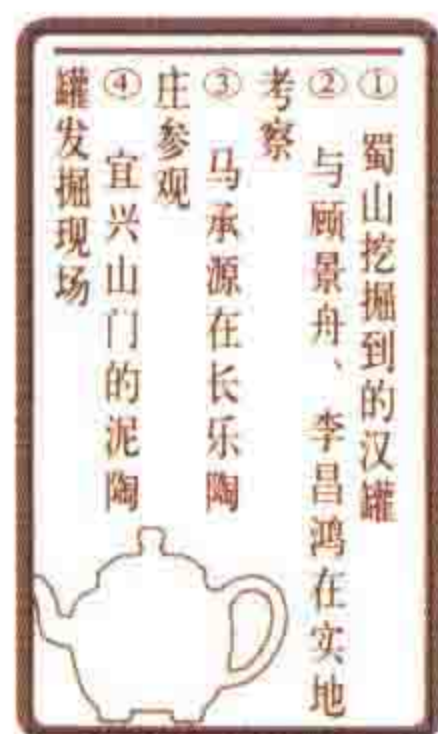 ① 蜀山挖掘到的汉罐
② 与顾景舟、李昌鸿在实地
考察
③ 马承源在长乐陶
庄参观
④ 宜兴山门的泥陶
罐发掘现场